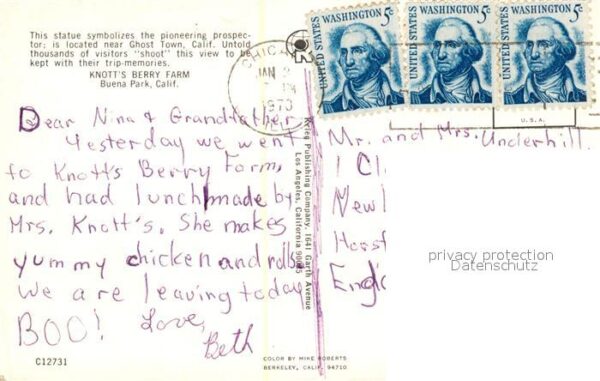 This statue symbolizes the pioneering prospec-
tor; is located near Ghost Town, Calif. Untold
thousands of visitors "shoot" this view to be
kept with their trip-memories.
KNOTT'S BERRY FARM
Buena Park, Calif.
Dear Nina & Grandfather,
Yesterday we went
to Knott's Berry Farm,
and had lunch made by
Mrs. Knott's. She makes
yummy chicken and rolls.
We are leaving today
BOO! Love,
Beth
C12731
COLOR BY MIKE ROBERTS
BERKELEY, CALIF. 94710
Krieg Publishing Company, 1641 Garth Avenue
Los Angeles, California 90035
CHICA
JAN 2
PM
1973
UNITED STATES WASHINGTON 5c
UNITED STATES WASHINGTON 5c
UNITED STATES WASHINGTON 5c
U.S.A.
Mr. and Mrs. Underhill.
1 Cl
New
Engla
privacy protection
Datenschutz